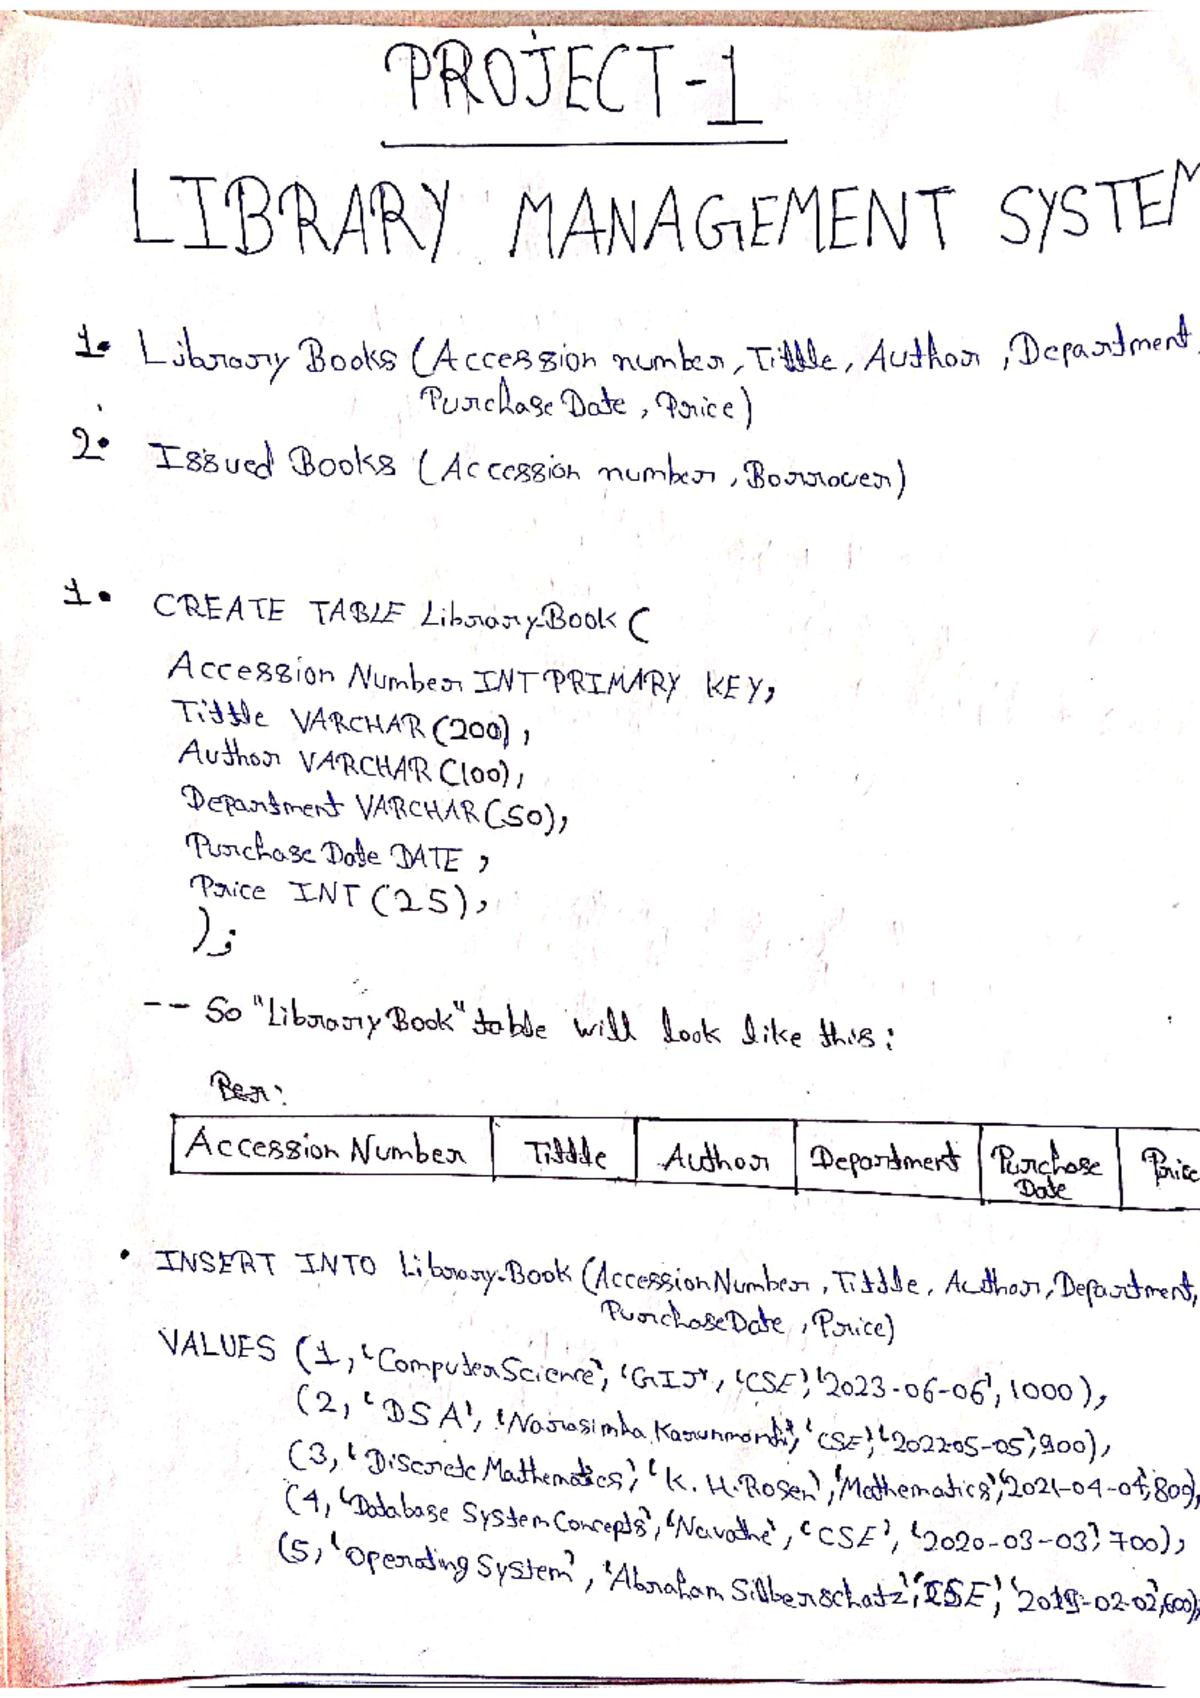 PROJECT-1
LIBRARY MANAGEMENT SYSTEM
1. Library Books (Accession number, Tittle, Author, Department,
Purchase Date, Price)
2. Issued Books (Accession number, Borrower)
1. CREATE TABLE Library-Book (
Accession Number INT PRIMARY KEY,
Tittle VARCHAR (200),
Author VARCHAR (100),
Department VARCHAR (50),
Purchase Date DATE,
Price INT (25),
);
-- So "Library Book" table will look like this:
Accession Number Tittle Author Department Purchase Date Price
• INSERT INTO Library-Book (Accession Number, Tittle, Author, Department,
Purchase Date, Price)
VALUES (1, 'Computer Science', 'GIJ', 'CSE', '2023-06-06', 1000),
(2, 'DSA', 'Narasimha 'CSE', '2022-05-05', 900),
(3, 'Discrete Mathematics', 'K. H. Rosen', 'Mathematics', '2021-04-04', 800),
(4, 'Database System Concepts', 'Navathe', 'CSE', '2020-03-03', 700),
(5, 'Operating System', 'Abraham Silberschatz', '2019-02-02', 600),